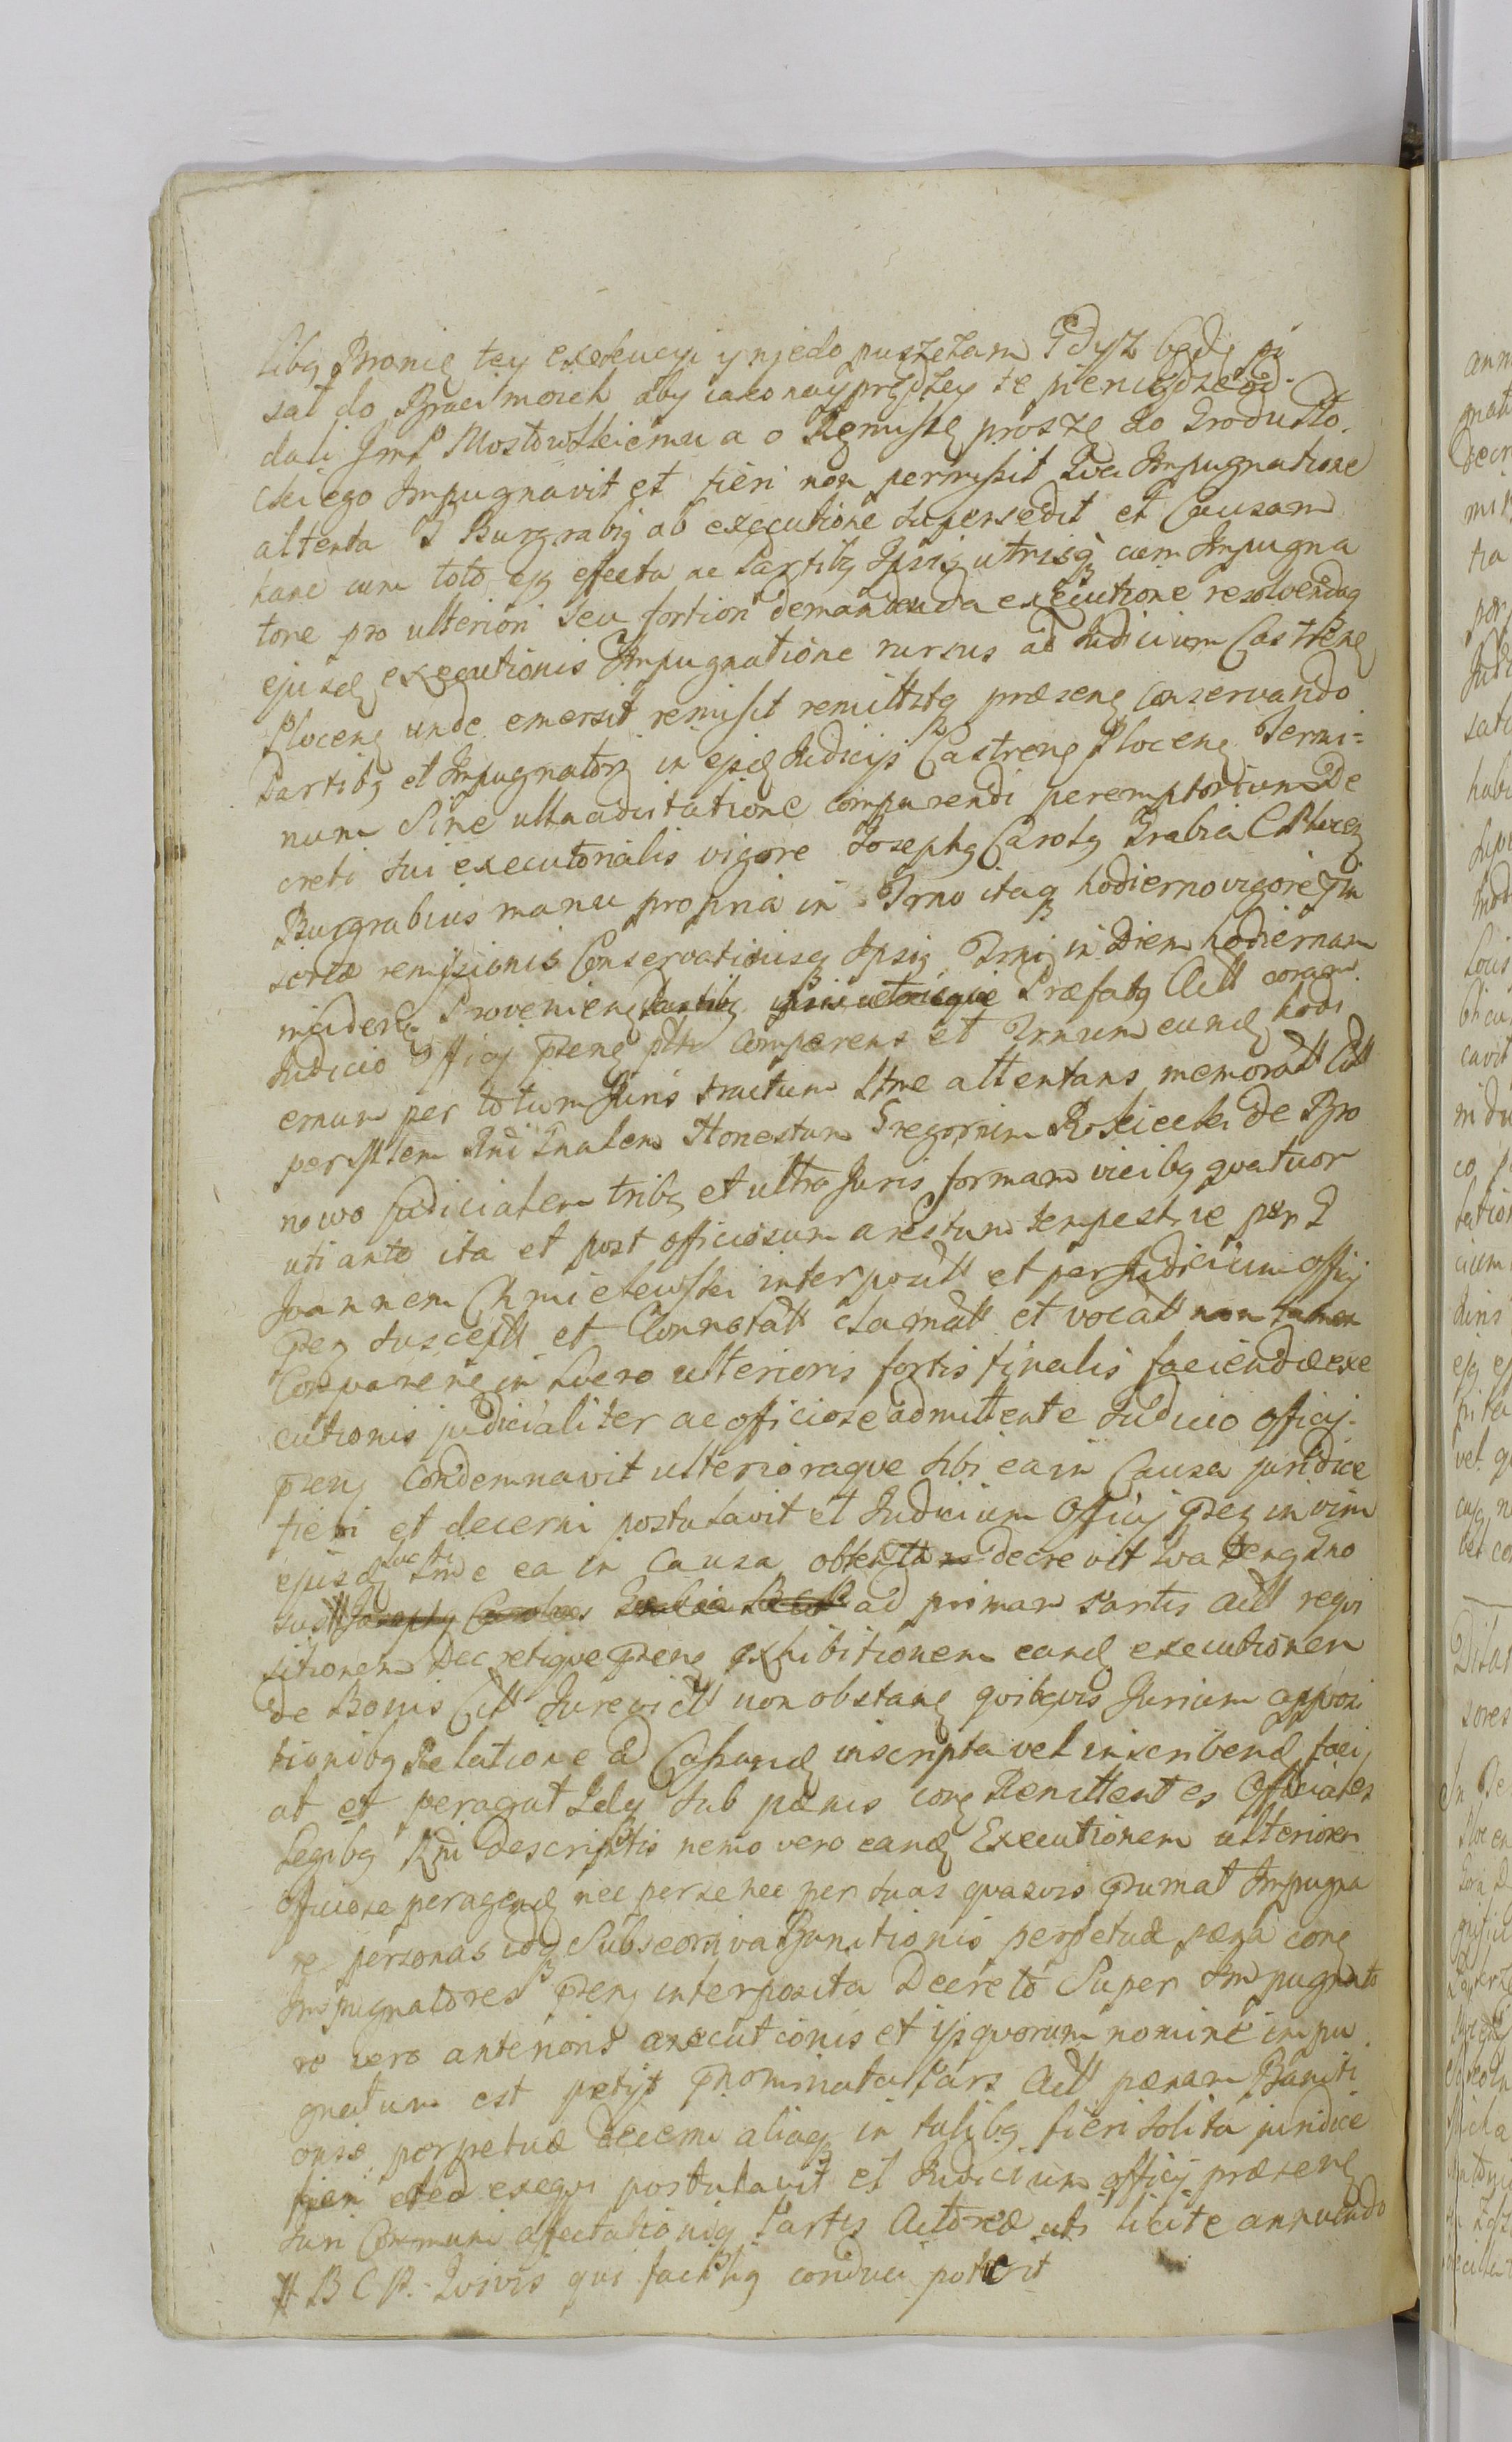 libq Bronię tey exekucyi y niedopuszczam Gdysz będę pi
sał do Braci moich aby iako nayprędzey te pieniądze od-
dali Jmſ Mostowskiemu a o Remissę proszę do Grodu Pło-
ckiego Impugnavit et fieri non permisit Qva Impugnatione
attenta G Burgrabiq ab executione supersedit et Causam
hanc cum toto ejq effectu ac Partibq Ipsis utrisq cum Impugna
tore pro ulteriori seu fortiori demandenda executione resolvendaq
ejusdę executionis Impugnatione rursus ad Judicium Castrenę
Plocenę unde emersit remisit remittitq præsenę Conservando
Partibq et Impugnatori in ejsdę Judicijs Castrenę Plocenę Termi=
num Sine ulla adcitatione comparendi peremptorium De
creti sui executorialis vigore Josephq Carolq Grabia CPlocen
Burgrabius manu propria in Trno itaq hodierno vigore Præin
sertæ remissionis Conservationisq Ipsiq Trni in Diem hodiernam
incidenę Provenienę Partibq ipsis utrisque Præfatq Actt coram
Judicio Officij Præsenę ptr comparens et Trnum eundę hodi
ernum per totum Juris tractum Strne attentans memoratt Citt
per Mtem Rni Gnalem Honestum Gregorium Roscicki De Bro
nowo Judicialem tribq et ultra Juris formam vicibq qvatuor
uti ante ita et post officiosum arestum tempestive per G
Joannem Chmielewski interpositt et per Judicium Offij
Præsę suscept et Connotatt clamatt et vocatt non tamen
Comparenę in lucro ulterioris fortis finalis faciendæ exe
cutionis judicialiter ac officiose admittente Judicio Officij
Præsenę condemnavit ulterioraque sibi ea in Causa juridice
fieri et decerni postulavit et Judicium Officij Præsę in vim
ejusdę lucri me ea in Causa obtentis decrevit Qva tenę Gno
sus # Josephq Carolus Grabia BCP ad primam Partis Actt reqvi
sitionem Decretiqve Præsenę exhibitionem eandę executionem
De Bonis Citt Jurevictt non obstanę qvibqvis Jurium opposi
tionibq Relatione ad Cassandę inscripta vel inscribendę faci
at et peragat Idq sub pænis conę Renittentes Officiales
Legibq Rni Descriptis nemo vero eandę Executionem ulteriorem
officiose peragendę nec per se nec per suas qvasvis Præsumat Impugna
re personas idq Sub secutiva Banitionis perpetuæ pæna conę
Impugnatores Præsenę interposita Decreto Super Impugnato
ro vero anterioris executionis et ijs qvorum nomine impu
gnatum est petijt Prænominata Pars Actt pænam Baniti
onis perpetuæ decerni aliaq in talibq fieri solita juridice
fieri et ea exeqvi postulavit et Judicium officij præsenę
Juri Communi affectationiq Partis Actoreæ uti licite annuendo
# BCP. Qvivis qui facilliq conduci poterit